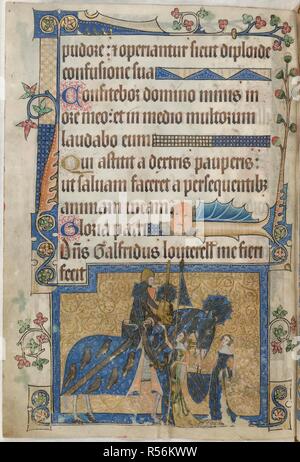 pudore: ⁊ operiantur sicut diploide
confusione sua
Confitebor domino nimis in
ore meo: et in medio multorum
laudabo eum
Qui astitit a dextris pauperis:
ut saluam faceret a persequentibȝ
animam meam
Gloria patri
Dñs Galfridus louterell me fieri
fecit
alamy
Image ID: R56KWW
www.alamy.com